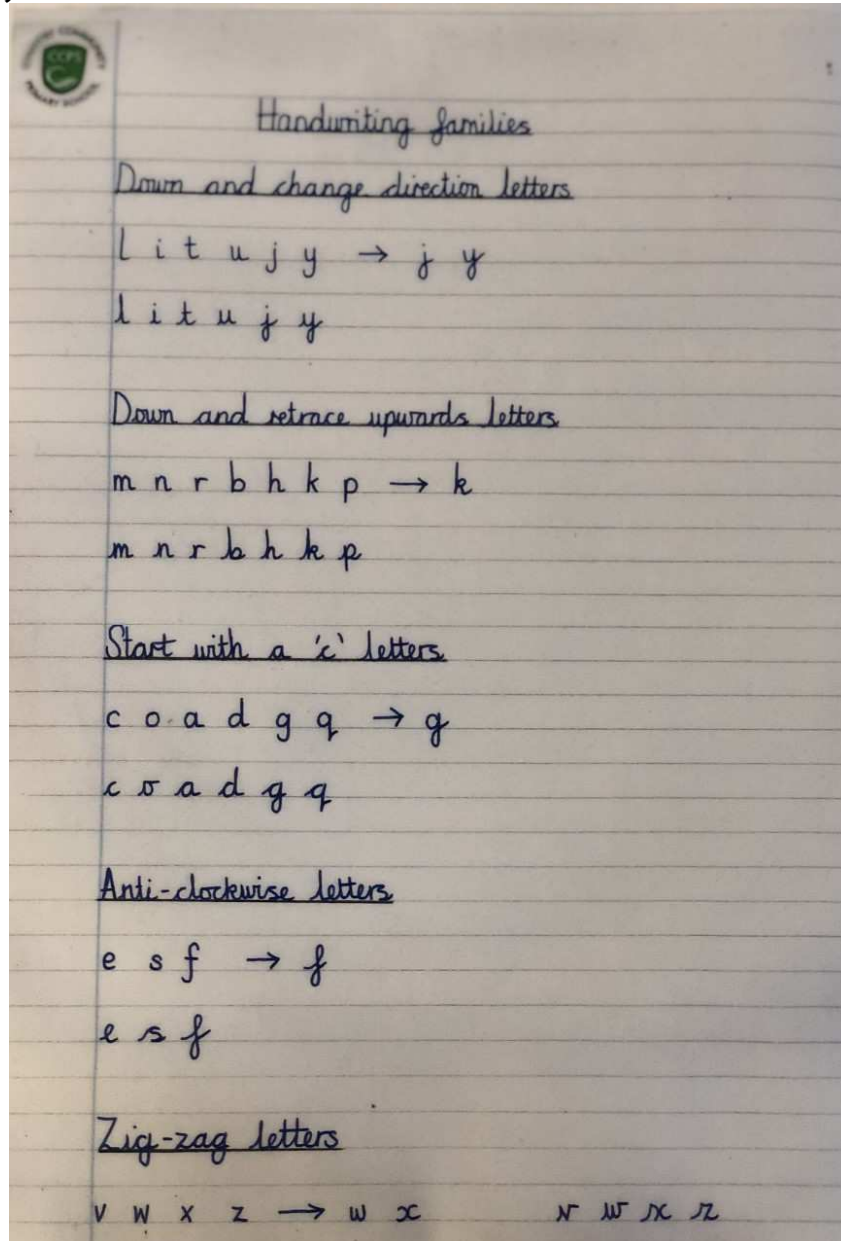 CCPS
PRIMARY SCHOOL
Handwriting families
Down and change direction letters
l i t u j y → j y
l i t u j y
Down and retrace upwards letters
m n r b h k p → k
m n r b h k p
Start with a 'c' letters
c o a d g q → g
c o a d g q
Anti-clockwise letters
e s f → f
e s f
Zig-zag letters
v w x z → w x v w x z